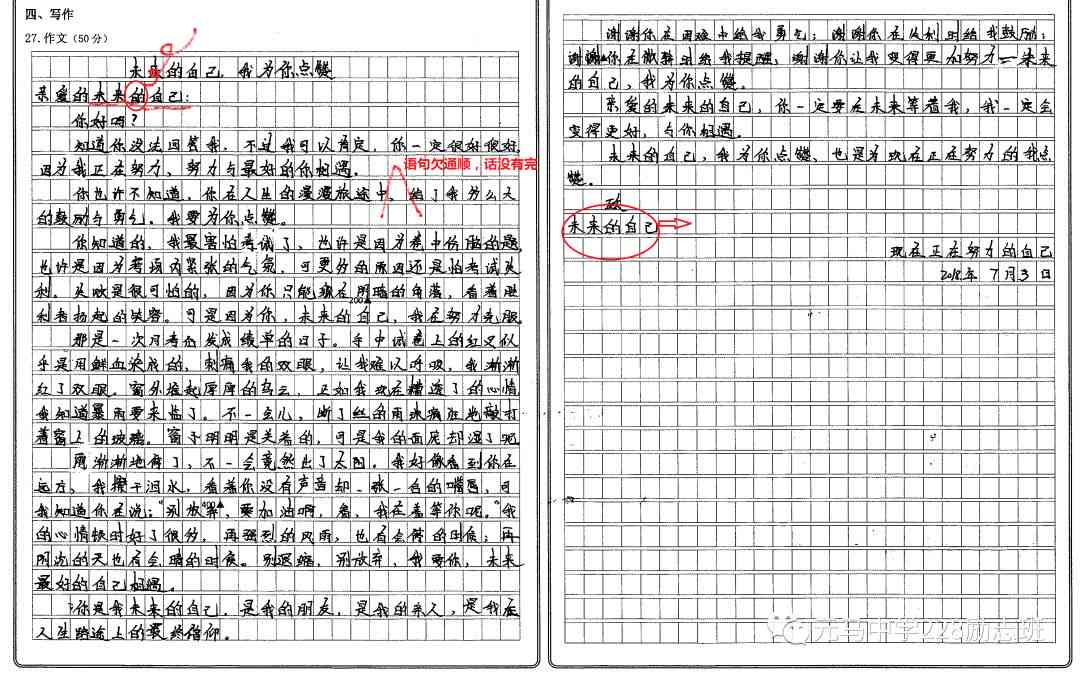 四、写作
27.作文（50分）
未来的自己，我为你点赞
亲爱的未来的自己：
你好吗？
知道你没法回答我，不过我可以肯定，你一定很好很好，
语句欠通顺，话没有完
因为我正在努力，努力与最好的你相遇。
你也许不知道，你在人生的漫漫旅途中，给了我多么大
的鼓励与勇气。我要为你点赞。
你知道的，我最害怕考试了，也许是因为卷中伤脑的题，
也许是因为考场内紧张的气氛，可更多的原因还是怕考试失
利。失败是很可怕的，因为你只能缩在阴暗的角落，看着胜
200▲
利者扬起的笑容。可是因为你，未来的自己，我在努力克服。
那是一次月考后发成绩单的日子。手中试卷上的红叉似
乎是用鲜血染成的，刺痛我的双眼，让我难以呼吸，我渐渐
红了双眼。窗外堆起厚厚的乌云，正如我现在糟透了的心情
我知道暴雨要来临了。不一会儿，断了丝的雨水疯狂地敲打
着窗上的玻璃。窗子明明是关着的，可是我的面庞却湿了吧
雨渐渐地停了，不一会竟然出了太阳。我好像看到你在
远方，我擦干泪水，看着你没有声音却一张一合的嘴唇，可
400▲
我知道你在说：“别放弃，要加油啊，看，我在着等你呢。”我
的心情顿时好了很多，再强烈的风雨，也有会停的时候；再
阴沉的天也有会晴的时候。别退缩，别放弃，我要你，未来
最好的自己相遇。
你是我未来的自己，是我的朋友，是我的亲人，是我在
人生路途上的最终信仰。
谢谢你在困难中给我勇气；谢谢你在失利时给我鼓励；
谢谢你在微弱时给我提醒，谢谢你让我变得更加努力——未来
的自己，我为你点赞。
亲爱的未来的自己，你一定要在未来等着我，我一定会
变得更好，与你相遇。
未来的自己，我为你点赞，也是为现在正在努力的我点
赞。
致
未来的自己
现在正在努力的自己
2018年7月3日
元马中学228励志班